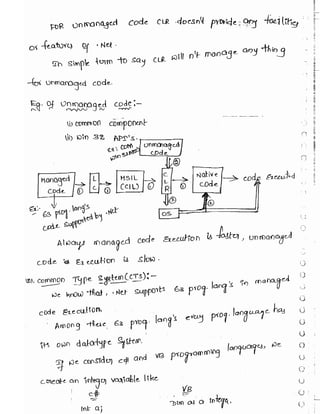 FOR unmanaged code CLR doesn't provide any facilities
or features of .Net.
In simple term to say CLR will n't manage any thing
for unmanaged code.
Eg. of unmanaged code:-
(i) common component
(ii) win 32 API's.
Ex: COM
Win 32 API's
unmanaged code
Managed Code
L C
MSIL (CIL)
C L R
Native Code
code Executed
OS
① ② ③ ④
Ex:-
63 prog. lang's
code supported by .Net
Always managed code Execution is faster, unmanaged
code is Execution is slow.
common Type System(CTS):-
we know that, .Net supports 63 prog. lang's in managed
code Execution.
Among these 63 prog. lang's every prog. language has
its own datatype system.
If we consider c# and VB programming languages, we
create an integer variable like
c#
VB
int a;
Dim a as Integer.